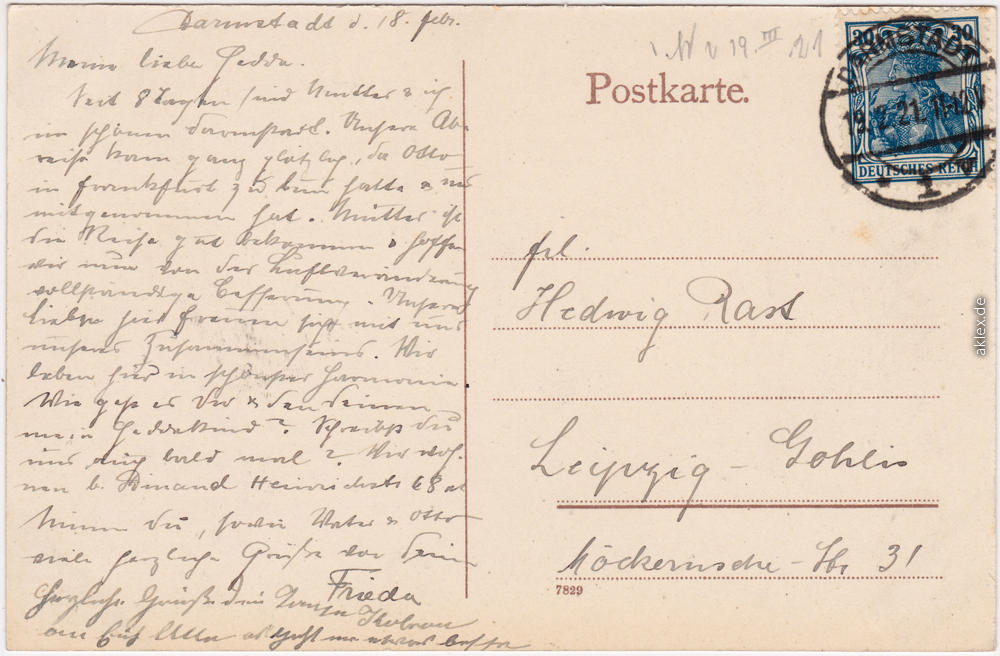 Darmstadt d. 18. febr.
Meine liebe Hedda.
Seit 8 Tagen sind Mutter & ich
im schönen Darmstadt. Unsere Ab-
reise kam ganz plötzlich, da Otto
in Frankfurt zu tun hatte & uns
mitgenommen hat. Mutter ist
die Reise gut bekommen & hoffen
wir nun von der Luftveränderung
vollständige Besserung. Unsere
lieben hier freuen sich mit uns
unseres Zusammenseins. Wir
leben hier in schönster Harmonie
Wie geht es Dir & den Deinen
mein Heddakind? Schreibst du
uns auch bald mal? Wir woh-
nen b. Amand Heinrichstr 68
Nimm du, sowie Vater & Otto
viele herzliche Grüße von Deiner
Frieda
Herzliche Grüße dein Tante
an Euch Alle es geht mir etwas besser
19 III 21
Postkarte.
30 30
DARMSTADT
18.2.21. 11-12
DEUTSCHES REICH
* 1
frl.
Hedwig Rast
Leipzig - Gohlis
Möckernsche - Str 31
7829
aklex.de